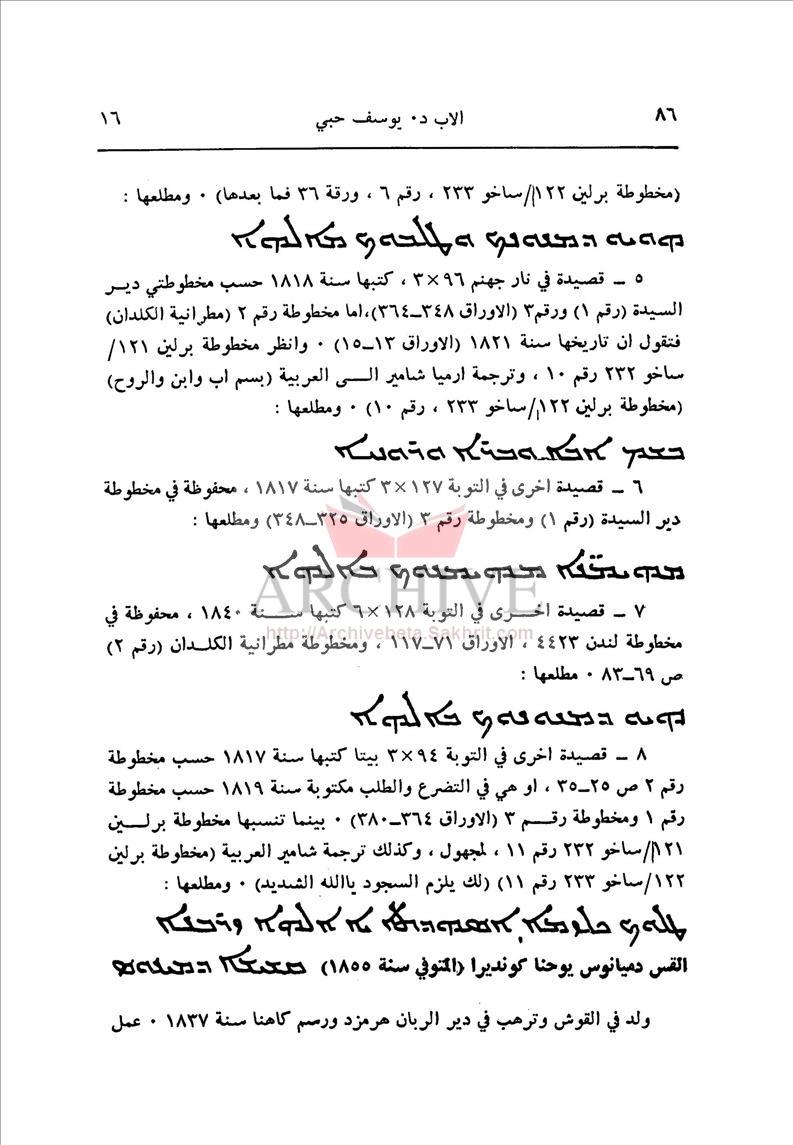 ٨٦ الاب د٠ يوسف حبي ١٦
(مخطوطة برلين ١٢٢/ساخو ٢٣٣ ، رقم ٦ ، ورقة ٣٦ فما بعدها) ٠ ومطلعها :
٥ ــ قصيدة في نار جهنم ٩٦×٣ ، كتبها سنة ١٨١٨ حسب مخطوطتي ديـر
السيدة (رقم ١) ورقم٣ (الاوراق ٣٤٨ــ٣٦٤)،اما مخطوطة رقم ٢ (مطرانية الكلدان)
فتقول ان تاريخها سنة ١٨٢١ (الاوراق ١٣ــ١٥) ٠ وانظر مخطوطة برلين ١٢١/
ساخو ٢٣٢ رقم ١٠ ، وترجمة ارميا شامير الــى العربية (بسم اب وابن والروح)
(مخطوطة برلين ١٢٢/ساخو ٢٣٣ ، رقم ١٠) ٠ ومطلعها :
٦ ــ قصيدة اخرى في التوبة ١٢٧×٣ كتبها سنة ١٨١٧ ، محفوظة في مخطوطة
دير السيدة (رقم ١) ومخطوطة رقم ٣ (الاوراق ٣٢٥ــ٣٤٨) ومطلعها :
ARCHIVE
٧ ــ قصيدة اخــرى في التوبة ١٢٨×٦ كتبها ســنة ١٨٤٠ ، محفوظة في
http://Archivebeta.Sakhrit.com
مخطوطة لندن ٤٤٢٣ ، الاوراق ٧١ــ١١٧ ، ومخطوطة مطرانية الكلــدان (رقم ٢)
ص ٦٩ــ٨٣ ٠ مطلعها :
٨ ــ قصيدة اخرى في التوبة ٩٤×٣ بيتا كتبها سنة ١٨١٧ حسب مخطوطة
رقم ٢ ص ٢٥ــ٣٥ ، او هي في التضرع والطلب مكتوبة سنة ١٨١٩ حسب مخطوطة
رقم ١ ومخطوطة رقــم ٣ (الاوراق ٣٦٤ــ٣٨٠) ٠ بينما تنسبها مخطوطة برلــين
١٢١/ساخو ٢٣٢ رقم ١١ ، لمجهول ، وكذلك ترجمة شامير العربية (مخطوطة برلين
١٢٢/ساخو ٢٣٣ رقم ١١) (لك يلزم السجود ياالله الشديد) ٠ ومطلعها :
القس دميانوس يوحنا كونديرا (المتوفي سنة ١٨٥٥)
ولد في القوش وترهب في دير الربان هرمزد ورسم كاهنا سنة ١٨٣٧ ٠ عمل